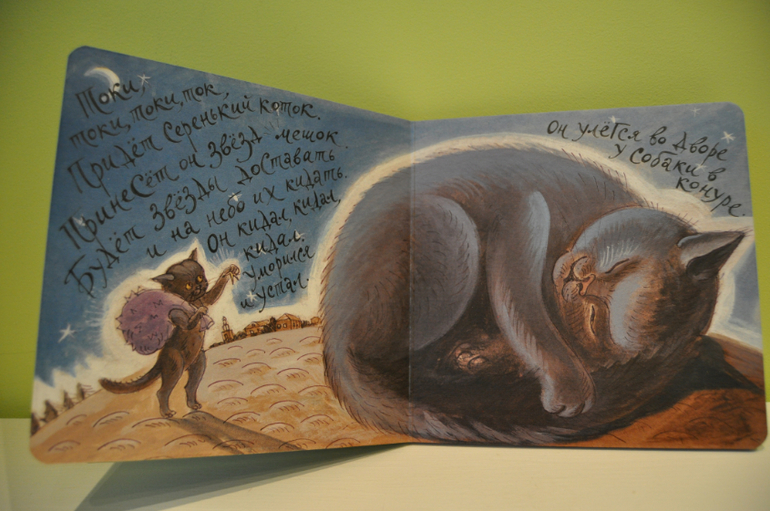 Токи,
токи, токи, ток,
Придёт Серенький коток.
Принесёт он звёзд мешок
Будет звёзды доставать
и на небо их кидать.
Он кидал, кидал,
кидал.
Уморился
и устал.
Он улёгся во дворе
у собаки в
конуре.